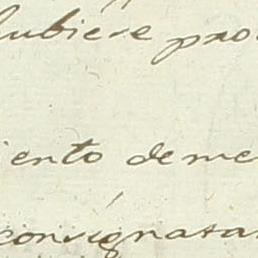 hubiese pro
iento de me
consignata